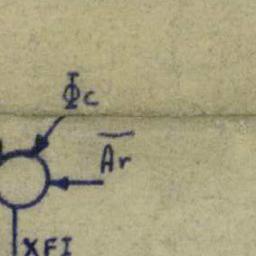 Φc
A̅r̅
XFI